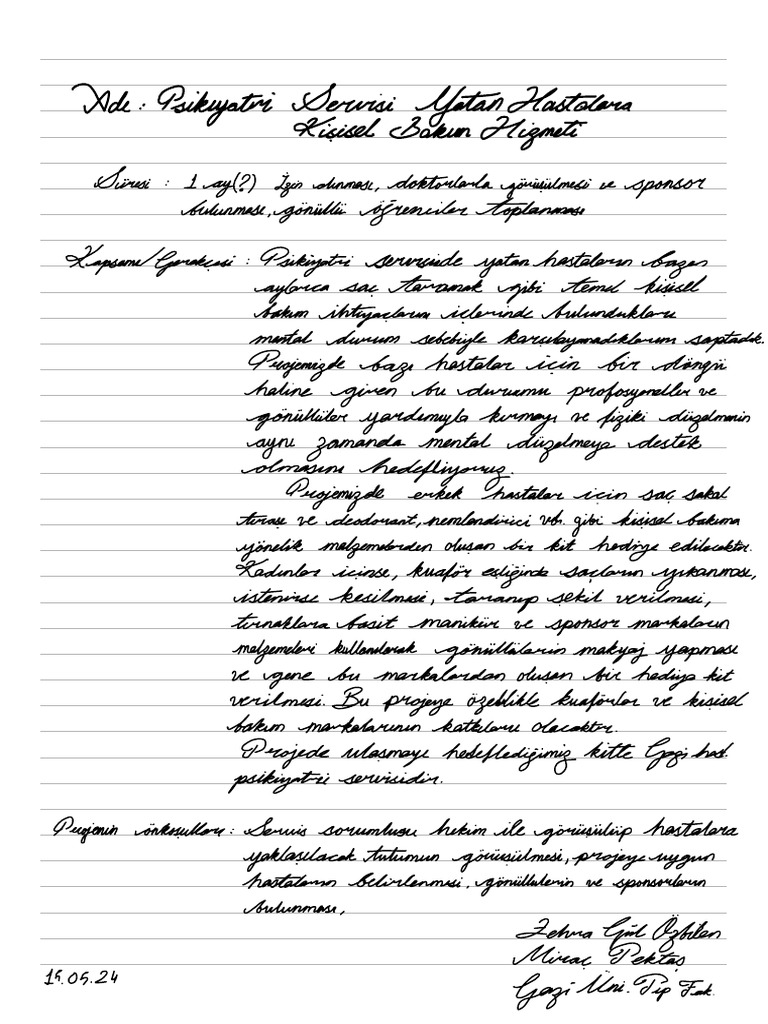 Adı: Psikiyatri Servisi Yatan Hastalara
Kişisel Bakım Hizmeti
Süresi : 1 ay(?) İzin alınması, doktorlarla görüşülmesi ve sponsor
bulunması, gönüllü öğrenciler toplanması
Kapsamı/Gerekçesi : Psikiyatri servisinde yatan hastaların bazen
aylarca saç taramak gibi temel kişisel
bakım ihtiyaçlarını içlerinde bulundukları
mental durum sebebiyle karşılayamadıklarını saptadık.
Projemizde bazı hastalar için bir döngü
haline giren bu durumu profosyoneller ve
gönüllüler yardımıyla kırmayı ve fiziki düzelmenin
aynı zamanda mental düzelmeye destek
olmasını hedefliyoruz.
Projemizde erkek hastalar için saç sakal
tıraşı ve deodorant, nemlendirici vb. gibi kişisel bakıma
yönelik malzemelerden oluşan bir kit hediye edilecektir.
Kadınlar içinse, kuaför eşliğinde saçların yıkanması,
istenirse kesilmesi, taranıp şekil verilmesi,
tırnaklara basit manikür ve sponsor markaların
malzemeleri kullanılarak gönüllülerin makyaj yapması
ve gene bu markalardan oluşan bir hediye kit
verilmesi. Bu projeye özellikle kuaförler ve kişisel
bakım markalarının katkıları olacaktır.
Projede ulaşmayı hedeflediğimiz kitle Gazi hast.
psikiyatri servisidir.
Projenin önkoşulları : Servis sorumlusu hekim ile görüşülüp hastalara
yaklaşılacak tutumun görüşülmesi, projeye uygun
hastaların belirlenmesi, gönüllülerin ve sponsorların
bulunması,
Zehra Gül Özbilen
Miraç Pektaş
Gazi Üni. Tıp Fak.
15.05.24